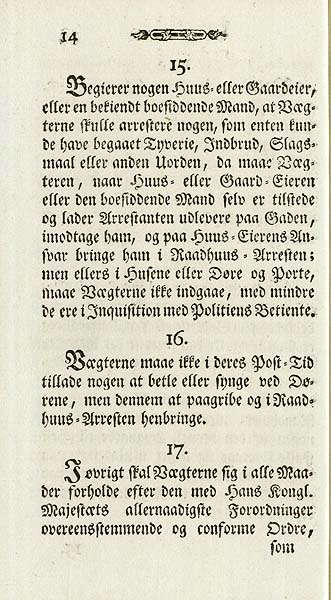 14
15.
Begierer nogen Huus- eller Gaardeier,
eller en bekiendt boesiddende Mand, at Væg-
terne skulle arrestere nogen, som enten kun-
de have begaaet Tyverie, Indbrud, Slags-
maal eller anden Uorden, da maae Væg-
teren, naar Huus- eller Gaard-Eieren
eller den boesiddende Mand selv er tilstede
og lader Arrestanten udlevere paa Gaden,
imodtage ham, og paa Huus-Eierens An-
svar bringe ham i Raadhuus-Arresten;
men ellers i Husene eller Døre og Porte,
maae Vægterne ikke indgaae, med mindre
de ere i Inquisition med Politiens Betiente.
16.
Vægterne maae ikke i deres Post-Tid
tillade nogen at betle eller synge ved Dø-
rene, men dennem at paagribe og i Raad-
huus-Arresten henbringe.
17.
I øvrigt skal Vægterne sig i alle Maa-
der forholde efter den med Hans Kongl.
Majestæts allernaadigste Forordninger
overeensstemmende og conforme Ordre,
som